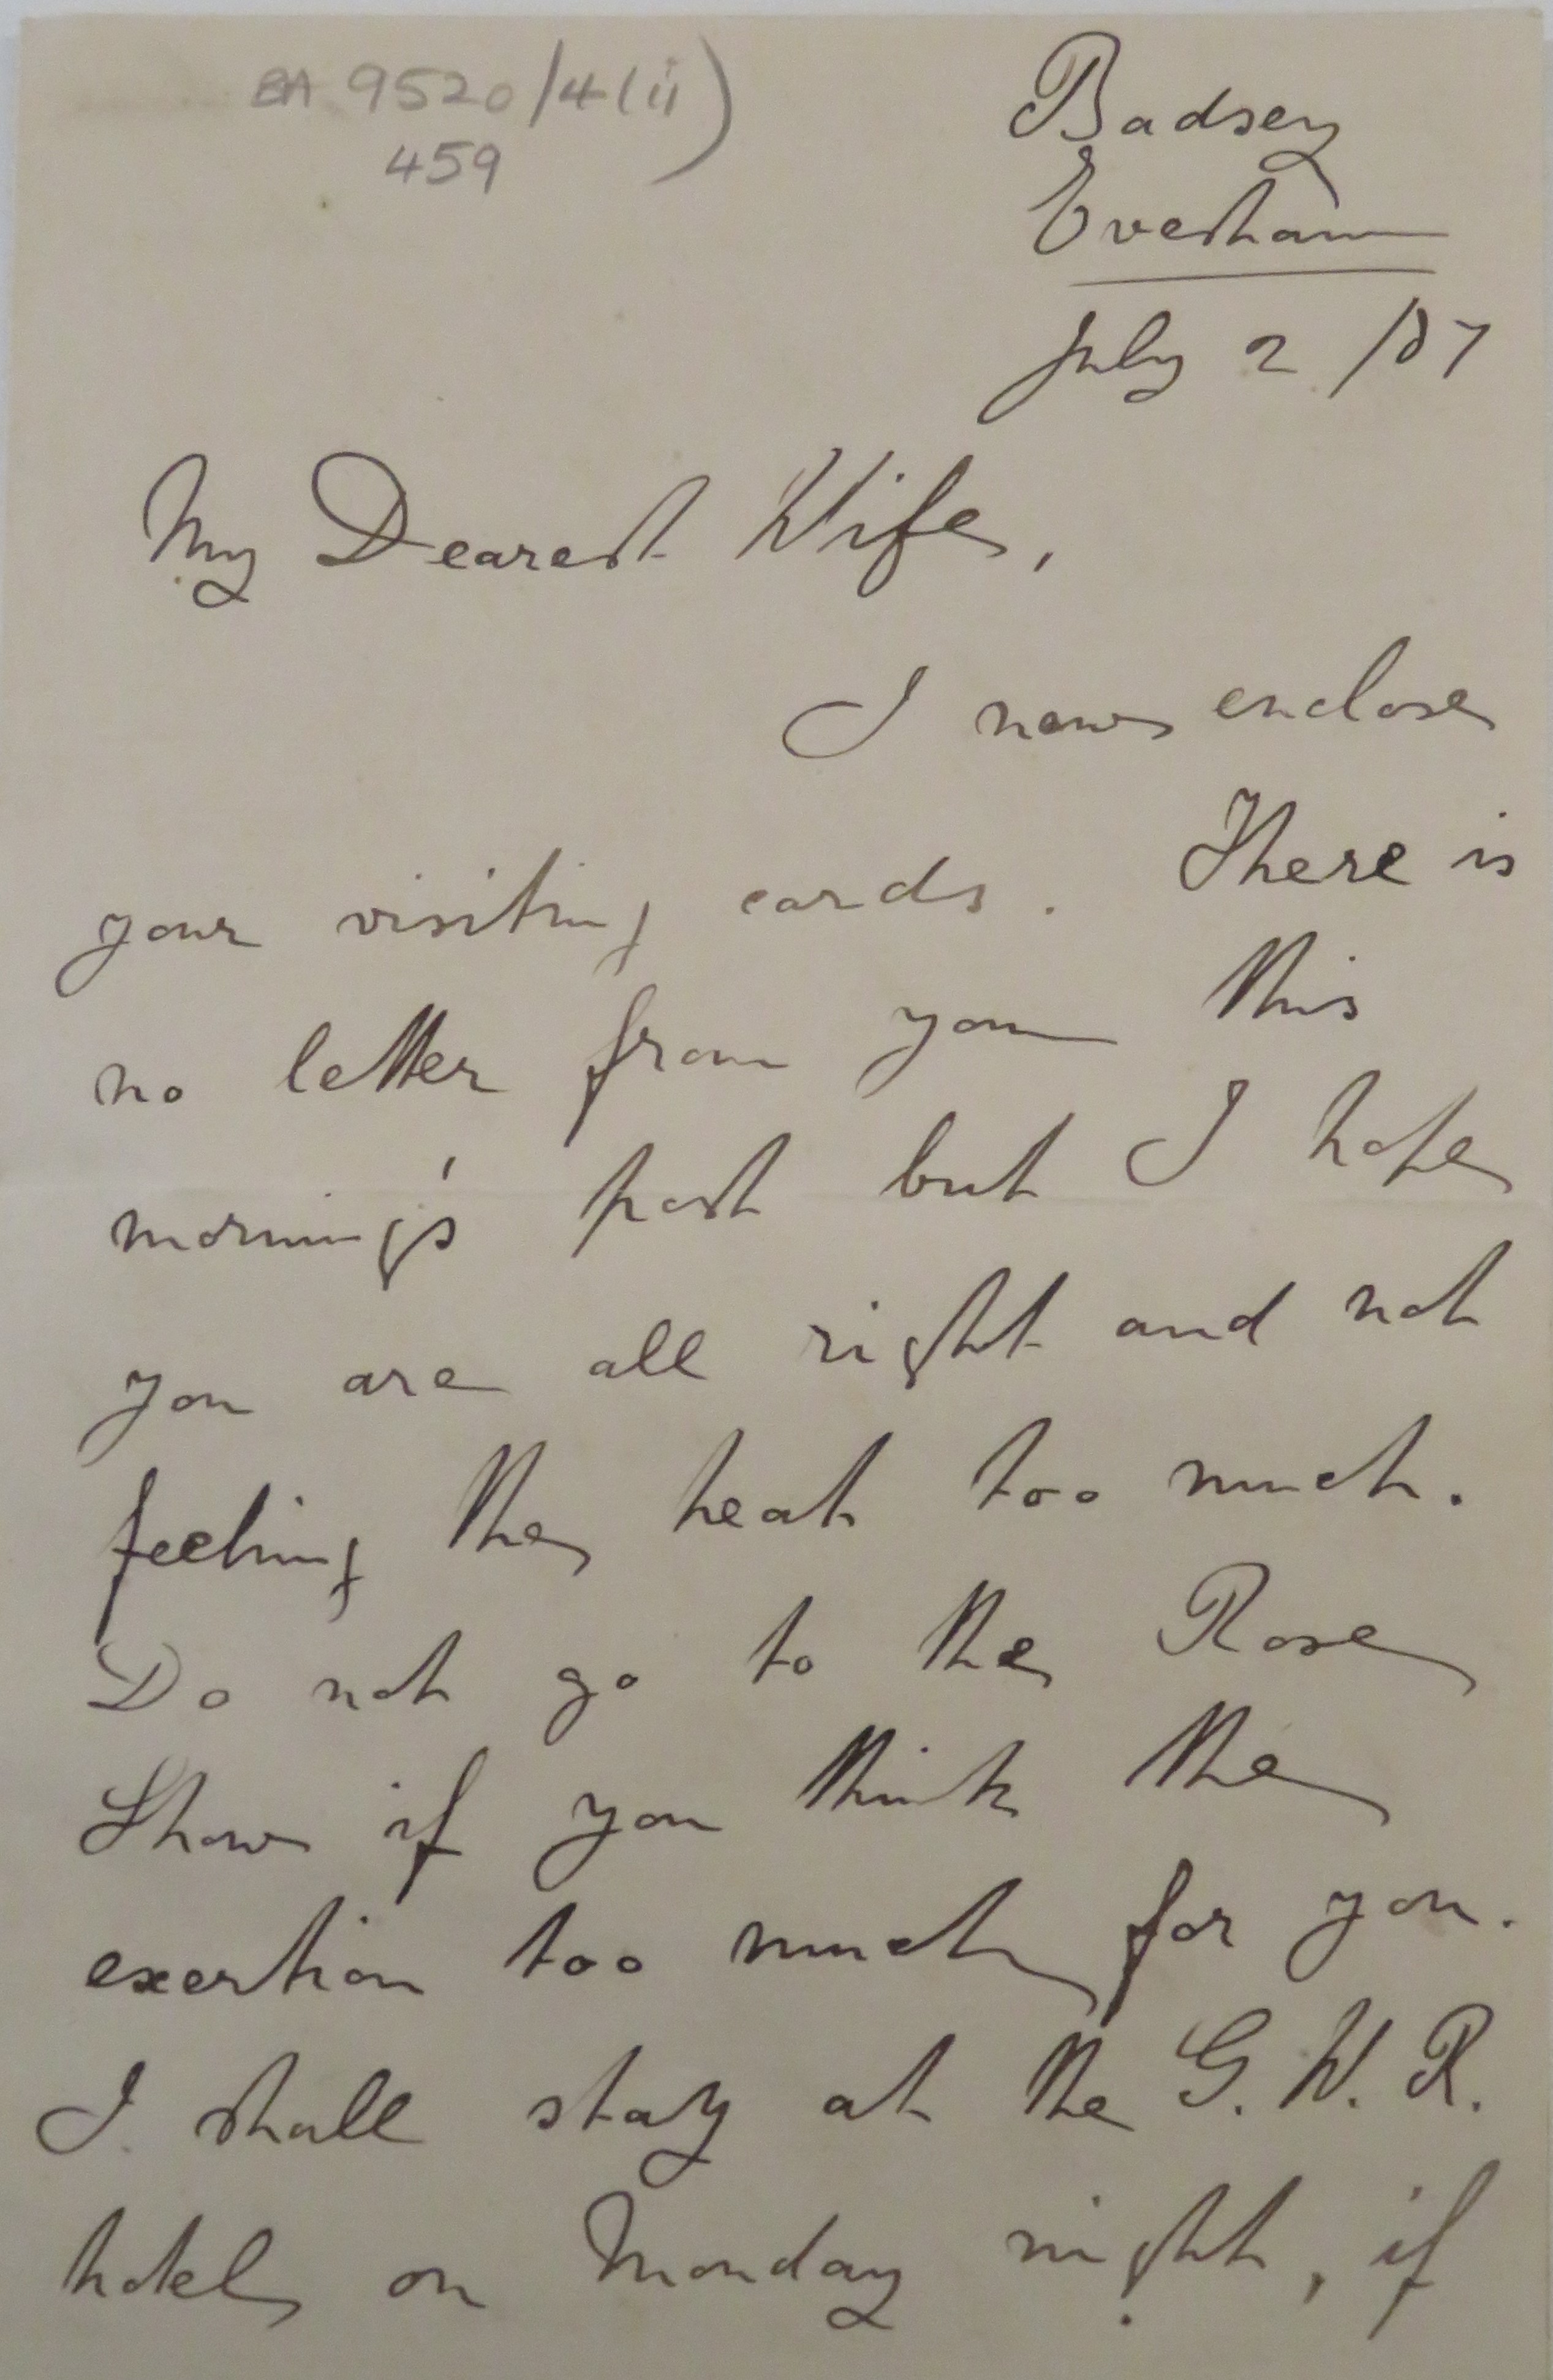 BA 9520/4(ii)
459
Badsey
Evesham
July 2 /87
My Dearest Wife,
I now enclose
your visiting cards. There is
no letter from you this
morning's post but I hope
you are all right and not
feeling the heat too much.
Do not go to the Rose
Show if you think the
exertion too much for you.
I shall stay at the G. W. R.
hotel on Monday night, if